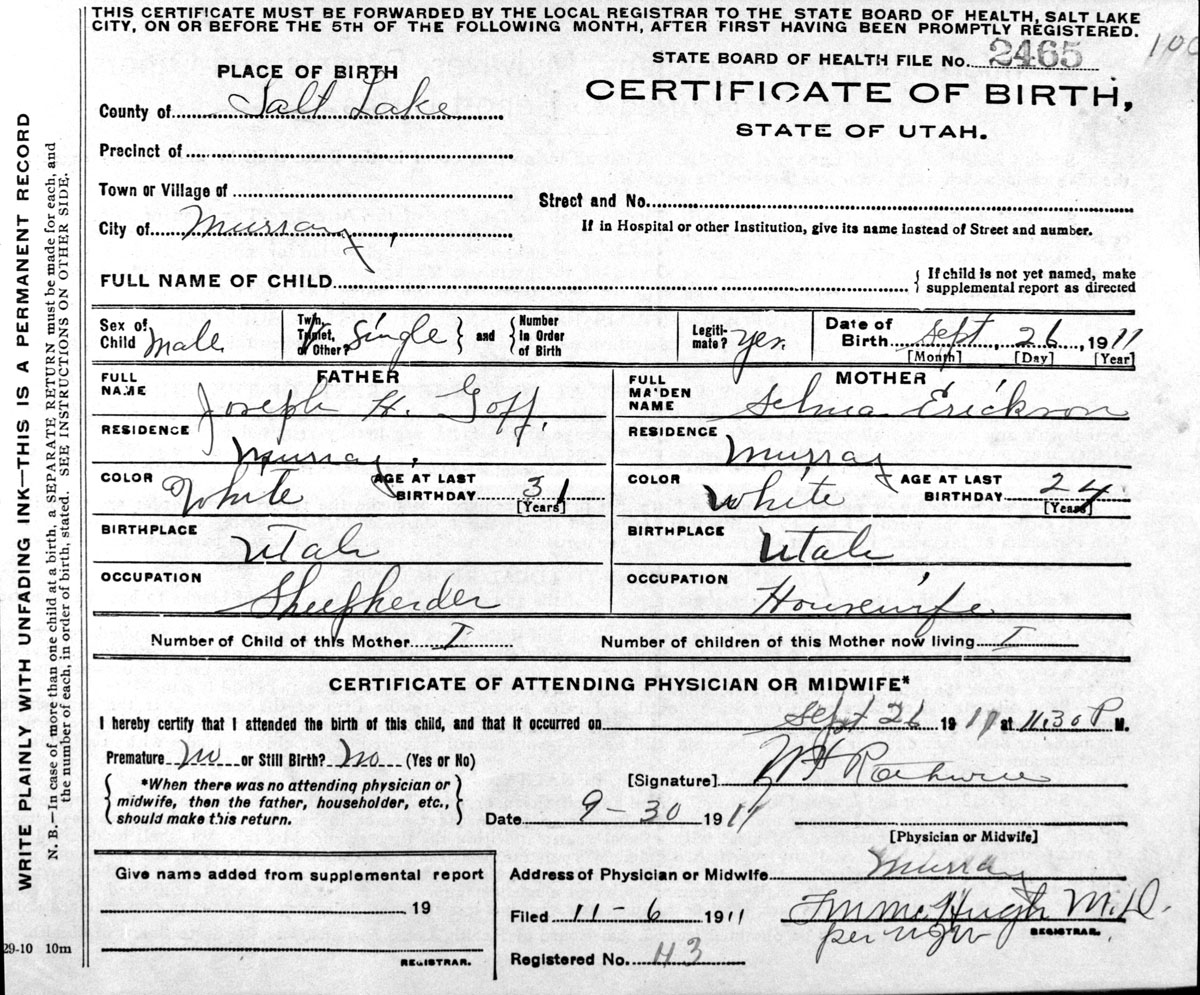 THIS CERTIFICATE MUST BE FORWARDED BY THE LOCAL REGISTRAR TO THE STATE BOARD OF HEALTH, SALT LAKE
CITY, ON OR BEFORE THE 5TH OF THE FOLLOWING MONTH, AFTER FIRST HAVING BEEN PROMPTLY REGISTERED.
WRITE PLAINLY WITH UNFADING INK—THIS IS A PERMANENT RECORD
N. B.—In case of more than one child at a birth, a SEPARATE RETURN must be made for each, and
the number of each, in order of birth, stated. SEE INSTRUCTIONS ON OTHER SIDE.
STATE BOARD OF HEALTH FILE No. 2465
CERTIFICATE OF BIRTH,
STATE OF UTAH.
PLACE OF BIRTH
County of Salt Lake
Precinct of
Town or Village of
Street and No.
City of Murray,
If in Hospital or other Institution, give its name instead of Street and number.
FULL NAME OF CHILD
{ If child is not yet named, make
supplemental report as directed
Sex of Child Male
Twin, Triplet, or Other? Single } and { Number in Order of Birth
Legitimate? yes.
Date of Birth Sept, 26, 1911
[Month] [Day] [Year]
FATHER
FULL NAME Joseph H. Goff,
RESIDENCE Murray,
COLOR White AGE AT LAST BIRTHDAY 31
[Years]
BIRTHPLACE Utah
OCCUPATION Sheepherder
MOTHER
FULL MAIDEN NAME Selma Erickson
RESIDENCE Murray
COLOR White AGE AT LAST BIRTHDAY 24
[Years]
BIRTHPLACE Utah
OCCUPATION Housewife
Number of Child of this Mother I Number of children of this Mother now living I
CERTIFICATE OF ATTENDING PHYSICIAN OR MIDWIFE*
I hereby certify that I attended the birth of this child, and that it occurred on Sept 26 1911 at 11.30 P M.
Premature No or Still Birth? No (Yes or No)
{ *When there was no attending physician or
midwife, then the father, householder, etc.,
should make this return. }
[Signature]
Date 9-30 1911
[Physician or Midwife]
Address of Physician or Midwife Murray
Filed 11-6 1911 M.D.
per
REGISTRAR.
Registered No. 43
Give name added from supplemental report
19
REGISTRAR.
29-10 10m